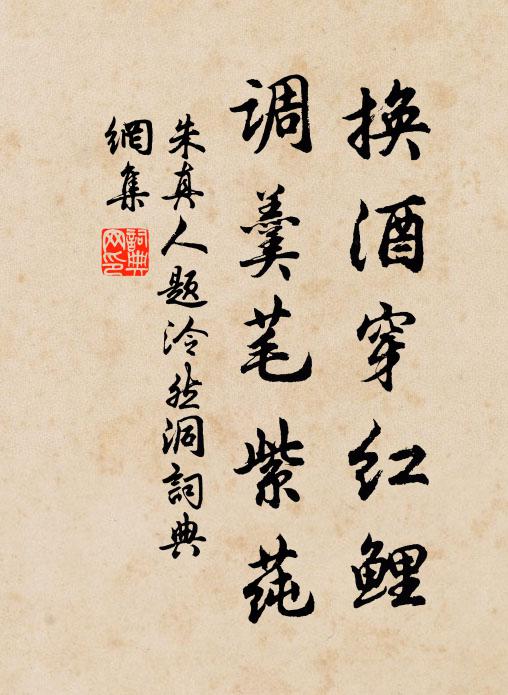 换酒穿红鲤
调羹芼紫莼
朱真人题泠然洞词典
網集
詞典網印